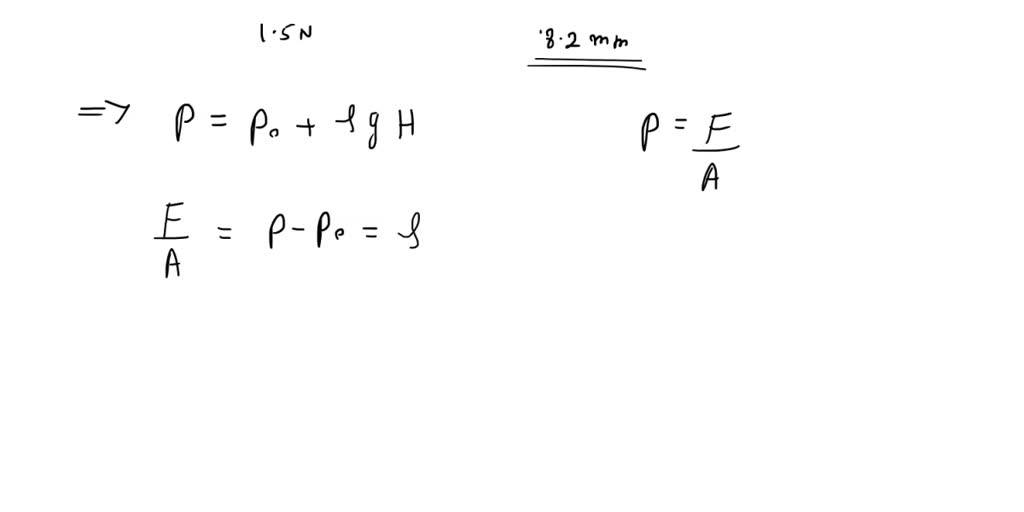 1.5N
8.2 mm
=> P = P₀ + ρgH
P = F/A
F/A = P - P₀ = ρ